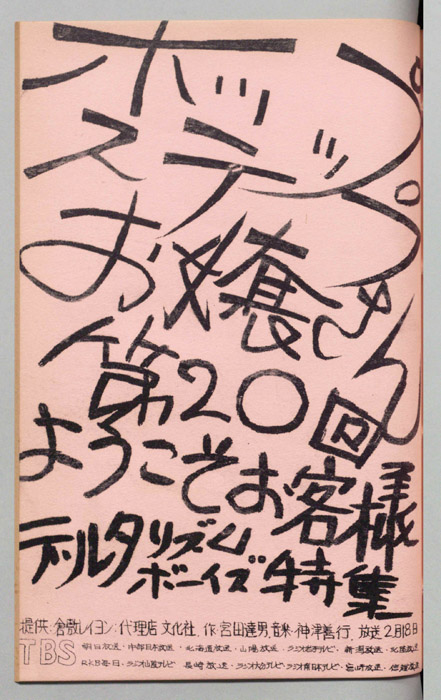 ホップ
ステップ
お嬢さん
第20回
ようこそお客様
デルタリズム
ボーイズ特集
提供:倉敷レイヨン:代理店 文化社. 作:宮田達男.音楽・神津善行. 放送2月18日
TBS
朝日放送・中部日本放送・北海道放送・山陽放送・ラジオ岩手テレビ・新潟放送・北陸放送
RKB毎日・長崎放送・ラジオ大分テレビ・ラジオ南日本テレビ・宮崎放送・信越放送